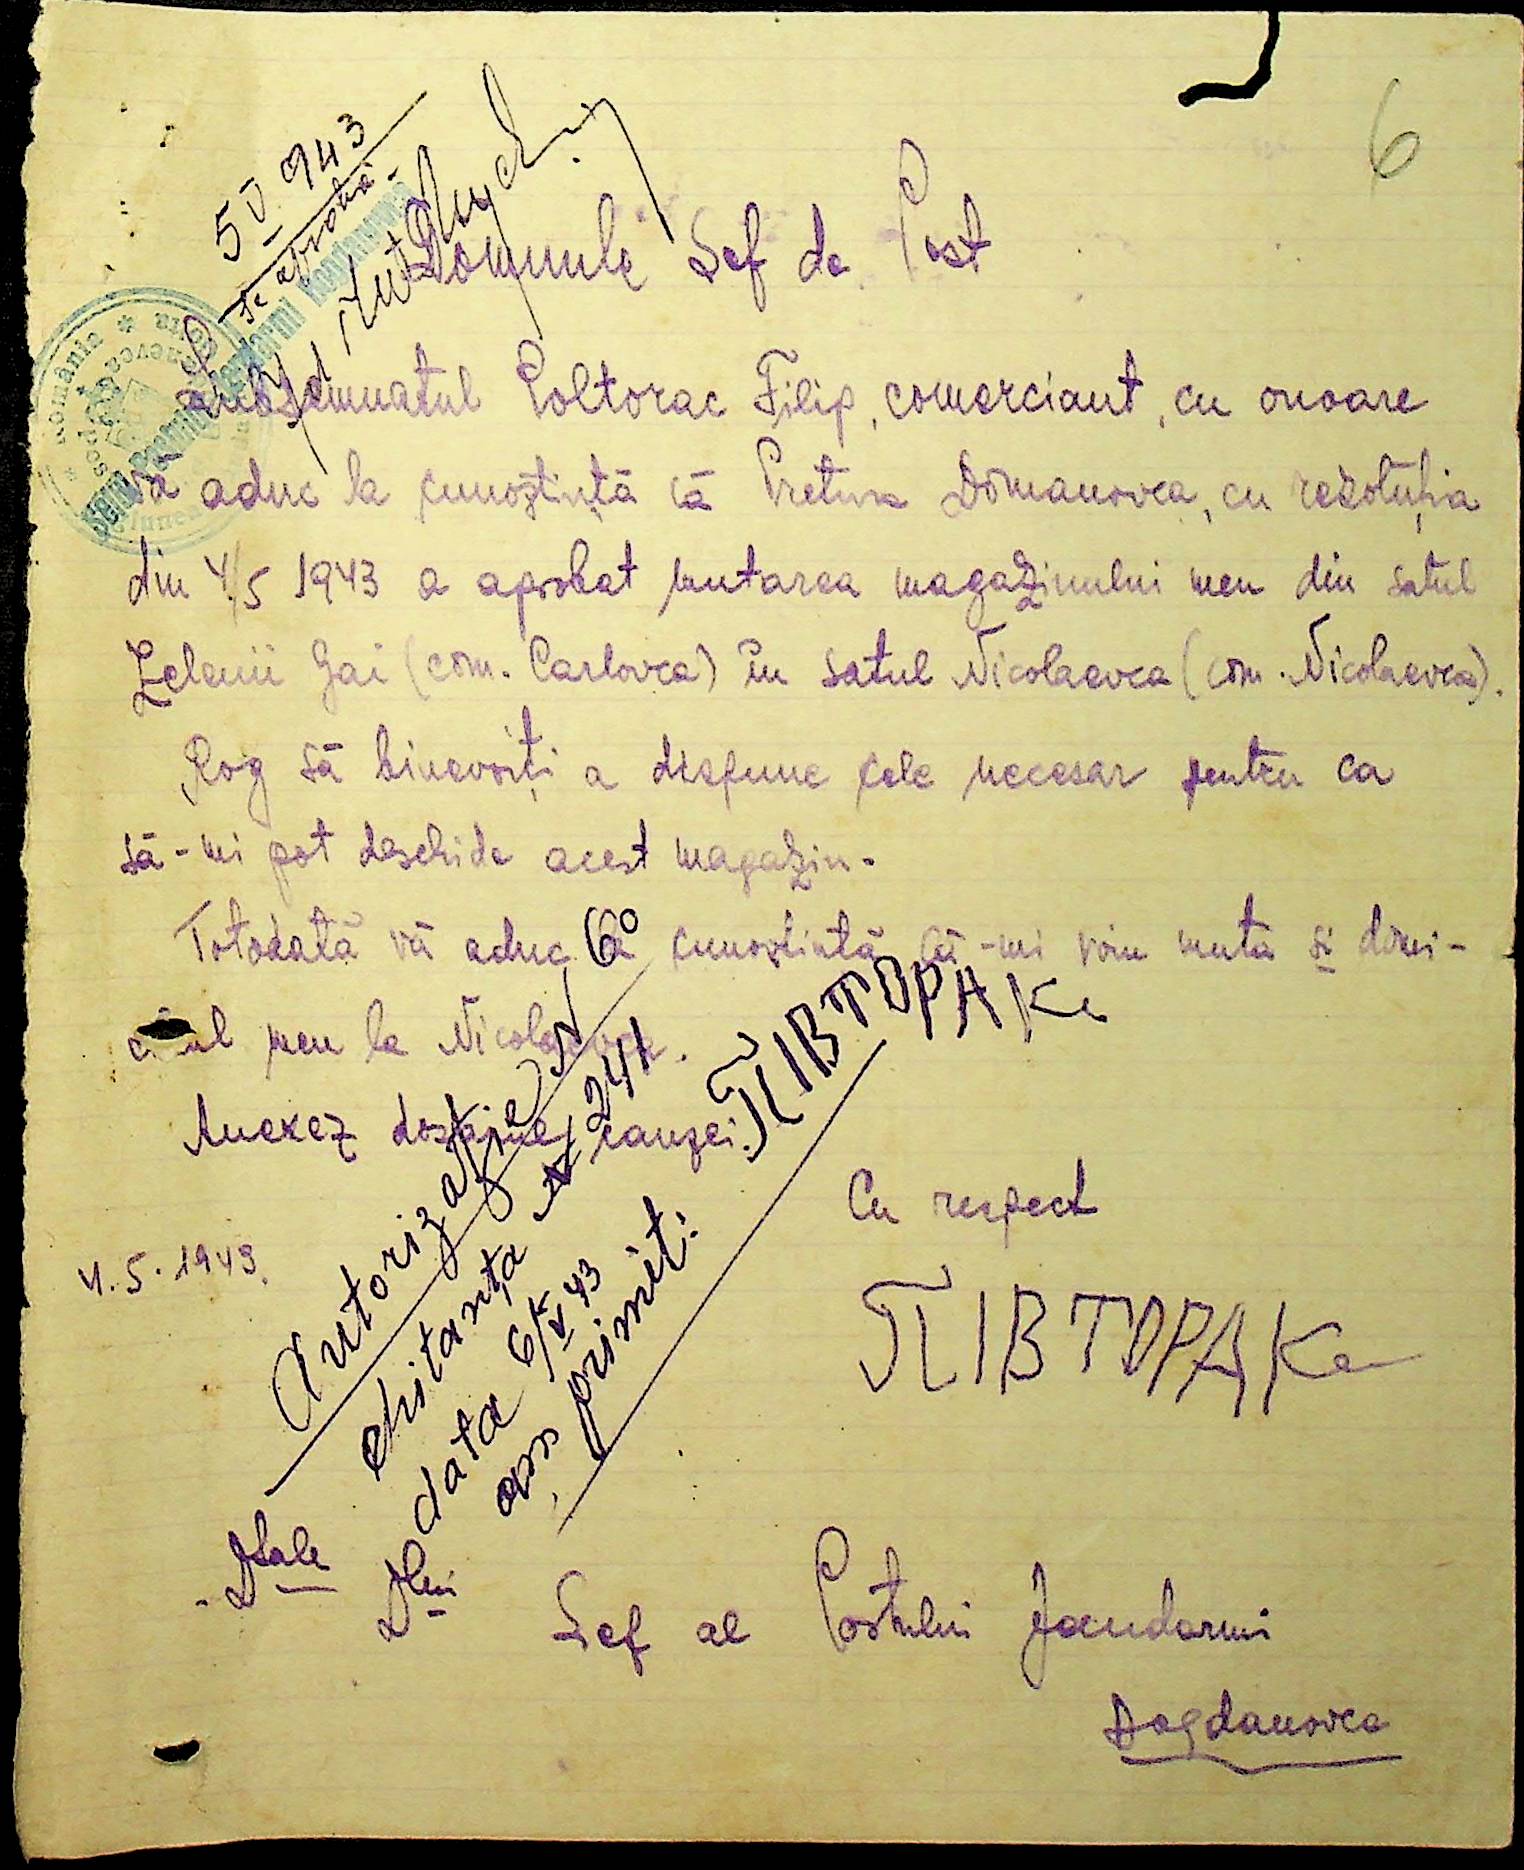 6
5 V 943
Se aprobă
Domnule Sef de Post
Subsemnatul Poltorac Filip, comerciant, cu onoare
vă aduc la cunoștință că Pretura Domanovca, cu rezoluția
din 4/5 1943 a aprobat mutarea magazinului meu din satul
Zelenii Gai (com. Carlovca) în satul Nicolaevca (com. Nicolaevca).
Rog să binevoiți a dispune cele necesar pentru ca
să-mi pot deschide acest magazin.
Totodată vă aduc la cunoștință că-mi voiu muta și domi-
cilul meu la Nicolaevca.
Anexez dosarul cauzei.
Cu respect
4.5.1943.
ПІВТОРАК
Autorizația N 6
chitanța N 241
data 6/V 43
am primit:
ПІВТОРАК
Dsale
Dlui Sef al Postului Jandarmi
Bogdanovca